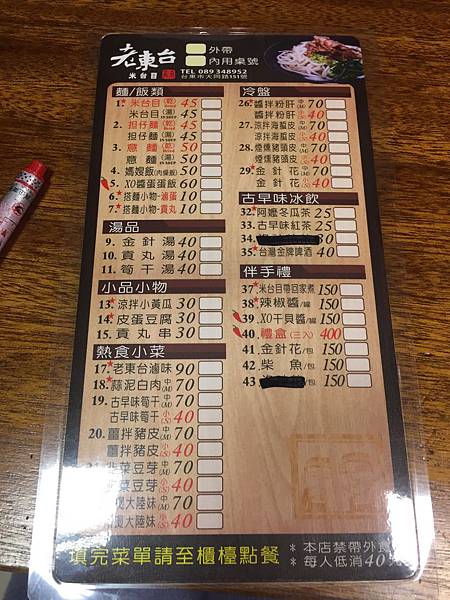 老東台
米台目
外帶
內用桌號
TEL 089 348952
台東市大同路151號
麵/飯類
1.*米台目(乾) 45
米台目(湯) 45
2.*担仔麵(乾) 45
担仔麵(湯) 45
3.*意麵(乾) 50
意麵(湯) 50
4. 媽嫂飯(肉燥飯) 50
5. XO醬蛋蛋飯 60
6.*搭麵小物-滷蛋 10
7.*搭麵小物-貢丸 10
湯品
9. 金針湯 40
10. 貢丸湯 40
11. 筍干湯 40
小品小物
13.*涼拌小黃瓜 30
14.*皮蛋豆腐 30
15. 貢丸串 30
熱食小菜
17.*老東台滷味 90
18.*蒜泥白肉 中(M) 70
19. 古早味筍干 中(M) 70
古早味筍干 小(S) 40
20. 薑拌豬皮 中(M) 70
薑拌豬皮 小(S) 40
韭菜豆芽 中(M) 70
韭菜豆芽 小(S) 40
大陸妹 中(M) 70
大陸妹 小(S) 40
冷盤
26.*醬拌粉肝 中(M) 70
醬拌粉肝 小(S) 40
27. 涼拌海蜇皮 中(M) 70
涼拌海蜇皮 小(S) 40
28. 煙燻豬頭皮 中(M) 70
煙燻豬頭皮 小(S) 40
29.*金針花 中(M) 70
金針花 小(S) 40
古早味冰飲
32.*阿嬤冬瓜茶 25
33. 古早味紅茶 25
34.
35.*台灣金牌啤酒 40
伴手禮
37.*米台目帶回家煮 150
38.*辣椒醬/罐 150
39.*XO干貝醬/罐 150
40.*禮盒(三入) 400
41. 金針花/包 150
42. 柴魚/包 150
43 /包 150
填完菜單請至櫃檯點餐
*本店禁帶外食
*每人低消40元